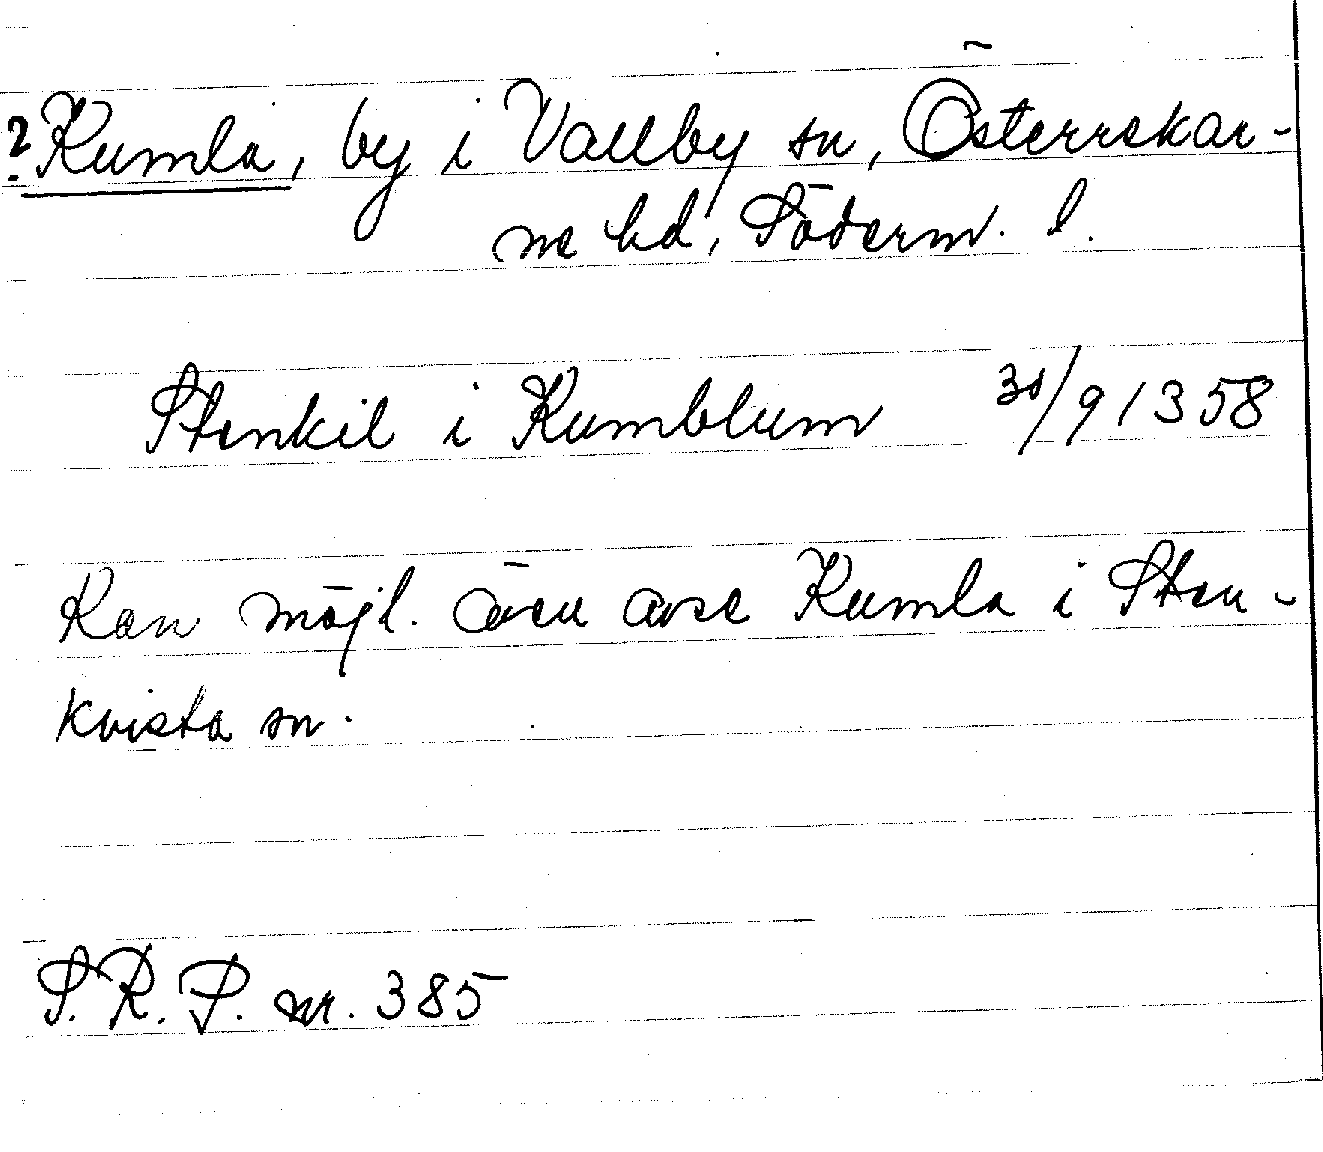 ? Kumla, by i Vallby sn, Österrekar-
ne hd, Söderm. l.
Stenkil i Kumblum 30/9 1358
Kan möjl. även avse Kumla i Sten-
kvista sn.
S.R.P. nr. 385